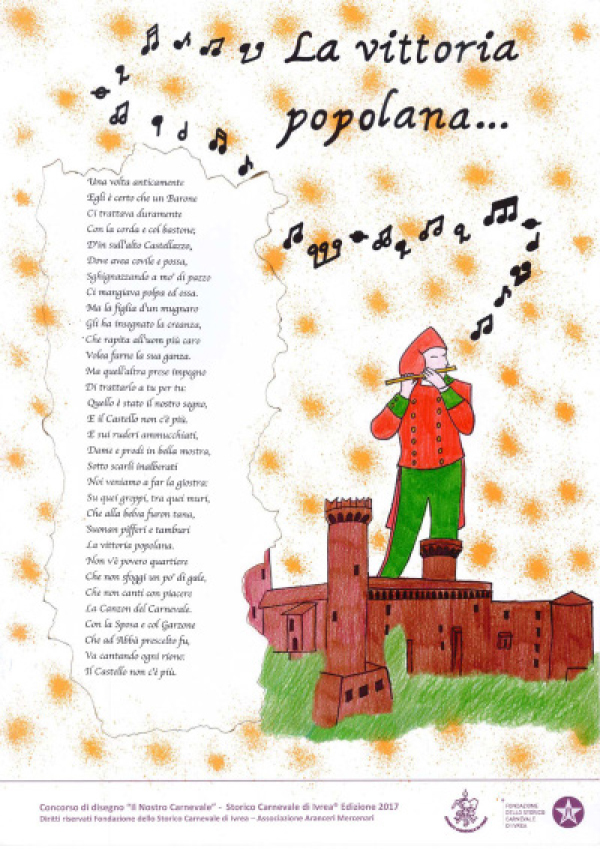 La vittoria
popolana...
Una volta anticamente
Egli è certo che un Barone
Ci trattava duramente
Con la corda e col bastone;
D'in sull'alto Castellazzo,
Dove avea covile e possa,
Sghignazzando a mo' di pazzo
Ci mangiava polpa ed ossa.
Ma la figlia d'un mugnaro
Gli ha insegnato la creanza,
Che rapita all'uom più caro
Volea farne la sua ganza.
Ma quell'altra prese impegno
Di trattarlo a tu per tu:
Quello è stato il nostro segno,
E il Castello non c'è più.
E sui ruderi ammucchiati,
Dame e prodi in bella mostra,
Sotto scarli inalberati
Noi veniamo a far la giostra:
Su quei greppi, tra quei muri,
Che alla belva furon tana,
Suonan pifferi e tamburi
La vittoria popolana.
Non v'è povero quartiere
Che non sfoggi un po' di gale,
Che non canti con piacere
La Canzon del Carnevale.
Con la Sposa e col Garzone
Che ad Abbà prescelto fu,
Va cantando ogni rione:
Il Castello non c'è più.
Concorso di disegno "Il Nostro Carnevale" - Storico Carnevale di Ivrea® Edizione 2017
Diritti riservati Fondazione dello Storico Carnevale di Ivrea – Associazione Aranceri Mercenari
FONDAZIONE
DELLO STORICO
CARNEVALE
DI IVREA